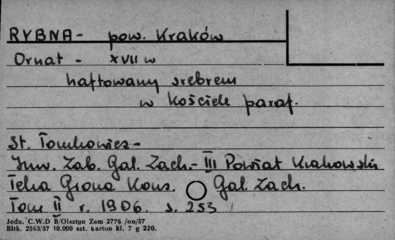 RYBNA - pow. Kraków
Ornat - XVII w
haftowany srebrem
w kościele paraf.
St. Tomkowicz -
Inw. Zab. Gal. Zach. - III Powiat Krakowski
Teka Grona Kons. Gal. Zach.
Tom II r. 1906. s. 253
Jedn. C.W.D B/Olsztyn Zam 2776 /on/57
Bltk. 2563/57 10.000 szt. karton kl. 7 g 220.